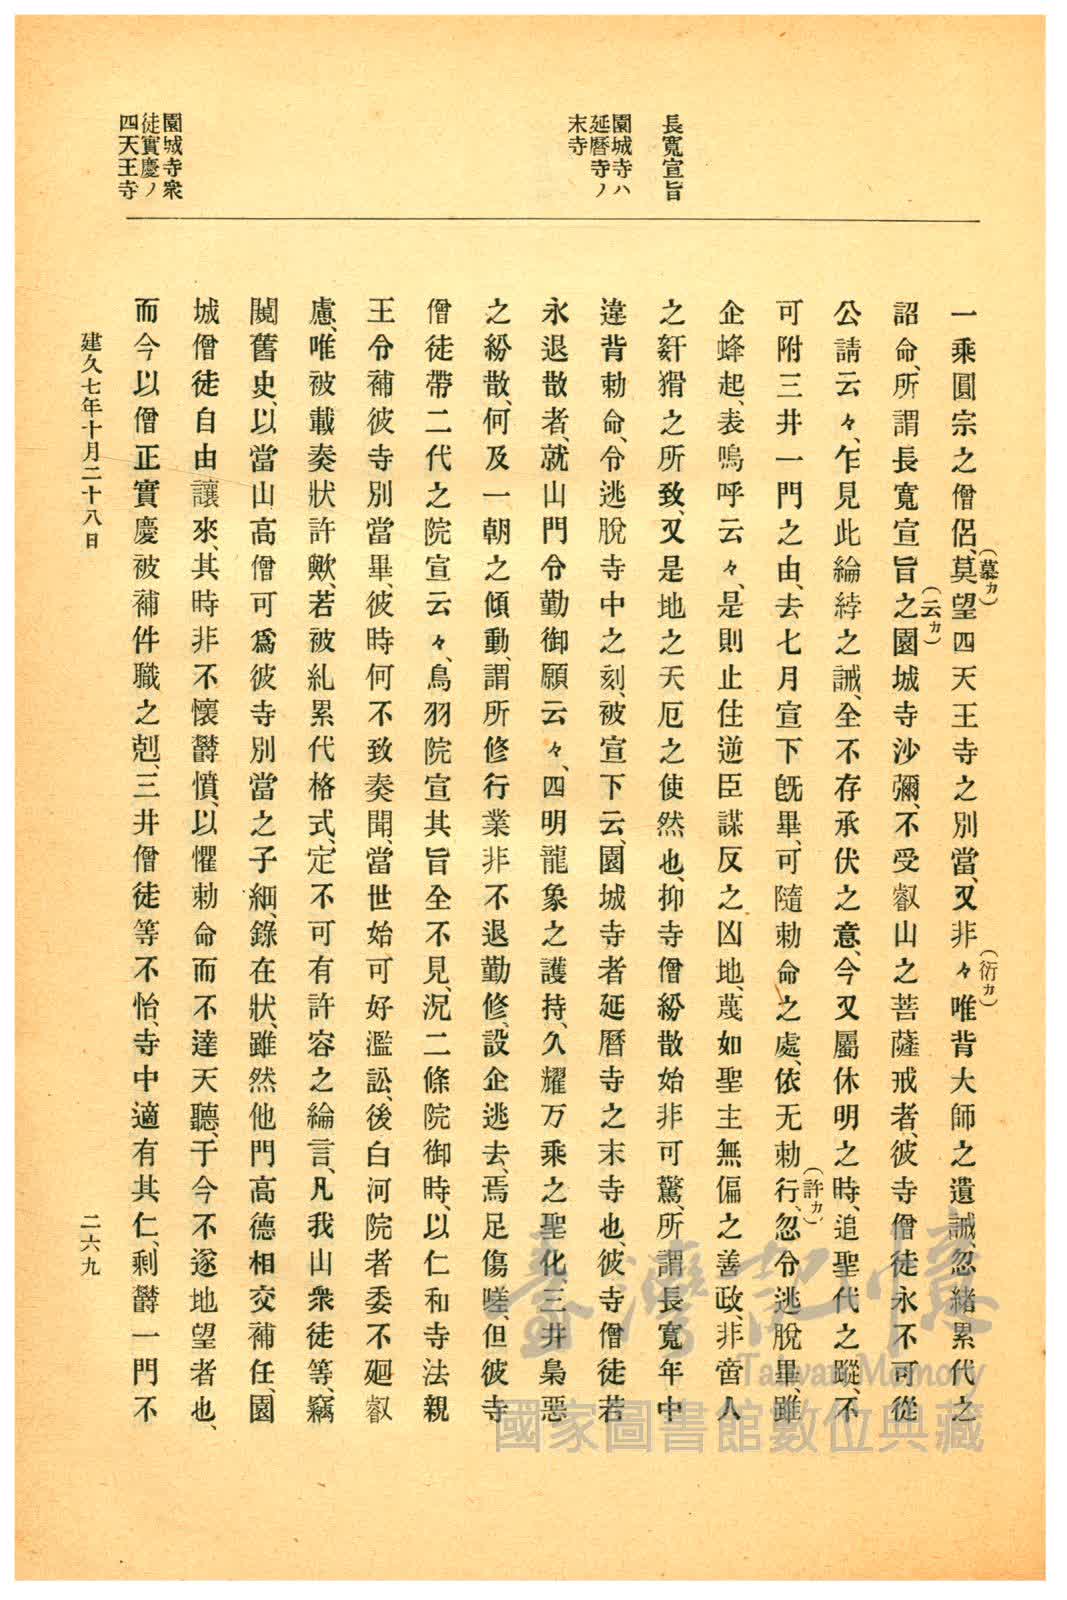 長寬宣旨
園城寺ハ
延曆寺ノ
末寺
園城寺衆
徒實慶ノ
四天王寺
一乘圓宗之僧侶、莫(慕カ)望四天王寺之別當、又非々(衍カ)唯背大師之遺誡、忽緖累代之
詔命、所謂長寬宣旨之(云カ)園城寺沙彌、不受叡山之菩薩戒者、彼寺僧徒永不可從
公請云々、乍見此綸綍之誡、全不存承伏之意、今又屬休明之時、追聖代之蹤、不
可附三井一門之由、去七月宣下旣畢、可隨勅命之處、依无勅行(許カ)、忽令逃脫畢、雖
企蜂起、表嗚呼云々、是則止住逆臣謀反之凶地、蔑如聖主無偏之善政、非啻人
之姧猾之所致、又是地之夭厄之使然也、抑寺僧紛散始非可驚、所謂長寬年中
違背勅命、令逃脫寺中之刻、被宣下云、園城寺者延曆寺之末寺也、彼寺僧徒若
永退散者、就山門令勤御願云々、四明龍象之護持、久耀万乘之聖化、三井梟惡
之紛散、何及一朝之傾動、謂所修行業非不退勤修、設企逃去、焉足傷嗟、但彼寺
僧徒帶二代之院宣云々、鳥羽院宣其旨全不見、況二條院御時、以仁和寺法親
王令補彼寺別當畢、彼時何不致奏聞、當世始可好濫訟、後白河院者委不廻叡
慮、唯被載奏狀許歟、若被糺累代格式、定不可有許容之綸言、凡我山衆徒等、竊
閱舊史、以當山高僧可爲彼寺別當之子細、錄在狀、雖然他門高德相交補任、園
城僧徒自由讓來、其時非不懷欝憤、以懼勅命而不達天聽、于今不遂地望者也、
而今以僧正實慶被補件職之剋、三井僧徒等不怡、寺中適有其仁、剩欝一門不
建久七年十月二十八日
二六九
臺灣記憶
Taiwan Memory
國家圖書館數位典藏